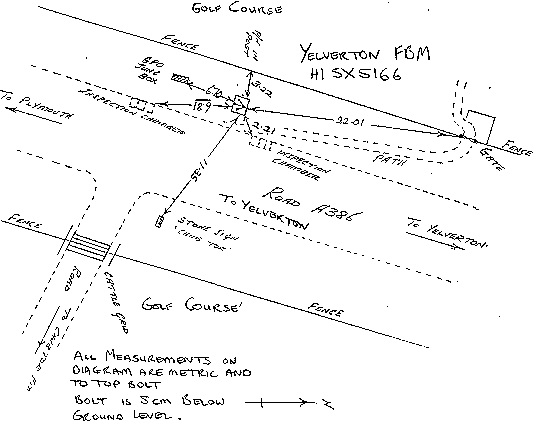 GOLF COURSE
FENCE
P/C IN
POST
YELVERTON FBM
H1 SX5166
GPO
JUNC
BOX
3.22
TO PLYMOUTH
INSPECTION CHAMBERS
22.01
2.21
FENCE
GATE
PATH
INSPECTION
CHAMBER
11.35
ROAD A386
TO YELVERTON
FENCE
STONE SIGN
TO YELVERTON
ROAD
CATTLE GRID
GOLF COURSE
FENCE
ALL MEASUREMENTS ON
DIAGRAM ARE METRIC AND
TO TOP BOLT
BOLT IS 5CM BELOW
GROUND LEVEL.
N